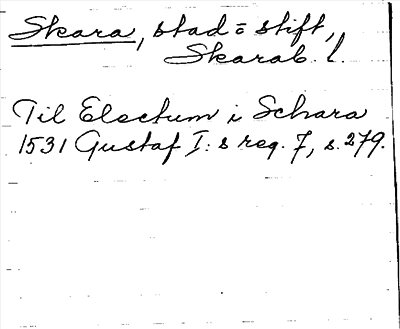 Skara, stad = stift,
Skarab. l.
Til Electum i Schara
1531 Gustaf I:s reg. 7, s. 279.